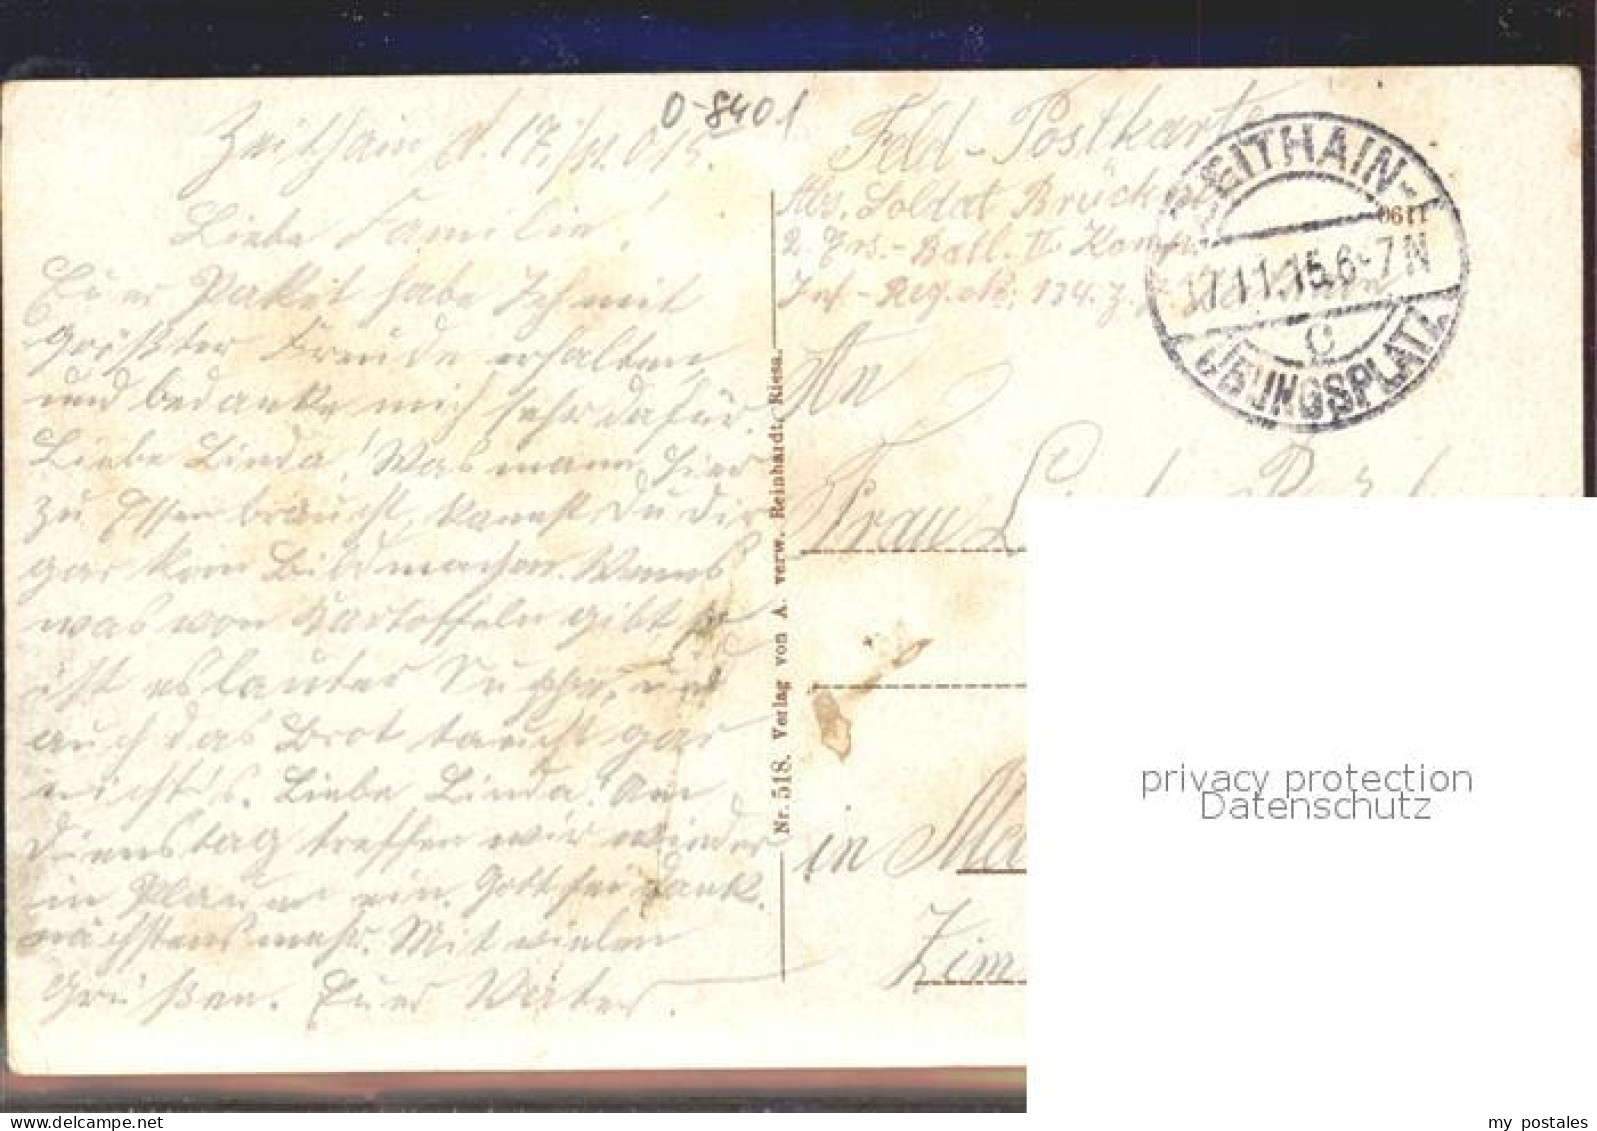 O-8401
Zeithain d. 17./11.015.
Liebe Familie.
Euer Paket habe Ich mit
größter Freude erhalten,
und bedanke mich sehr dafür.
Liebe Linda! Was man hier
zu Essen braucht, kannst Du dir
gar kein Bild machen. Wenns
was von Kartoffeln gibt so
ist es lauter Suppe, und
auch das Brot taucht gar
nicht's. Liebe Linda! Am
Dienstag treffen wir wieder
in Plauen ein. Gott sei Dank.
nächstens mehr. Mit vielen
Grüßen. Euer Vater.
Nr. 518. Verlag von A. verw. Reinhardt, Riesa.
Feld-Postkarte
Abs. Soldat Brückner
2. Ers.-Batl. II. Komp.
Inf.-Reg. No. 134. z. Z.
ZEITHAIN-
0611
17.11.15.6-7N
c
ÜBUNGSPLATZ
An
Frau
in
Zim
privacy protection
Datenschutz
my postales